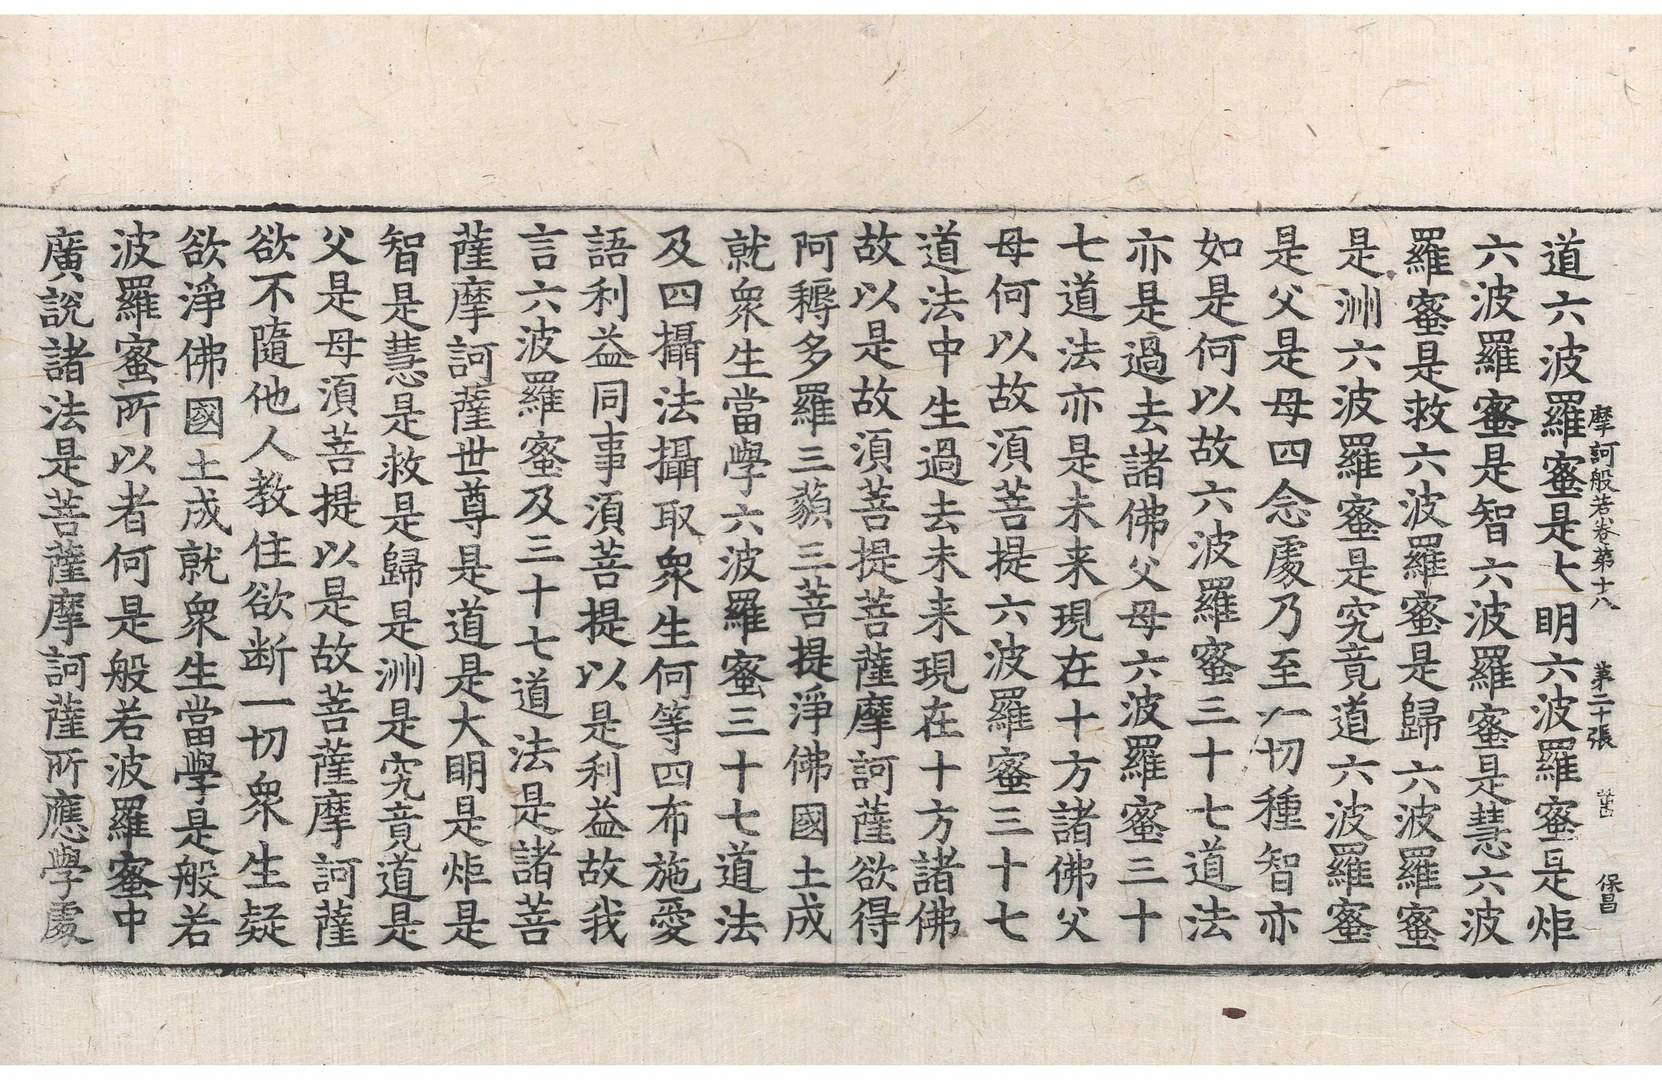 摩訶般若卷第十八 第二十張 保昌
道六波羅蜜是大明六波羅蜜是炬
六波羅蜜是智六波羅蜜是慧六波
羅蜜是救六波羅蜜是歸六波羅蜜
是洲六波羅蜜是究竟道六波羅蜜
是父是母四念處乃至一切種智亦
如是何以故六波羅蜜三十七道法
亦是過去諸佛父母六波羅蜜三十
七道法亦是未来現在十方諸佛父
母何以故須菩提六波羅蜜三十七
道法中生過去未来現在十方諸佛
故以是故須菩提菩薩摩訶薩欲得
阿耨多羅三藐三菩提淨佛國土成
就衆生當學六波羅蜜三十七道法
及四攝法攝取衆生何等四布施愛
語利益同事須菩提以是利益故我
言六波羅蜜及三十七道法是諸菩
薩摩訶薩世尊是道是大明是炬是
智是慧是救是歸是洲是究竟道是
父是母須菩提以是故菩薩摩訶薩
欲不隨他人教住欲断一切衆生疑
欲淨佛國土成就衆生當學是般若
波羅蜜所以者何是般若波羅蜜中
廣說諸法是菩薩摩訶薩所應學處